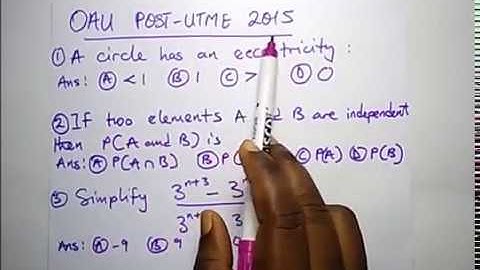 OAU POST-UTME 2015
① A circle has an ecc tricity :
Ans: Ⓐ < 1 Ⓑ 1 Ⓒ > Ⓓ 0
② If two elements A B are independent
then P(A and B) is
Ans: Ⓐ P(A ∩ B) Ⓑ P( Ⓒ P(A) Ⓓ P(B)
③ Simplify 3ⁿ⁺³ - 3
3ⁿ 3
Ans: Ⓐ -9 Ⓑ 9